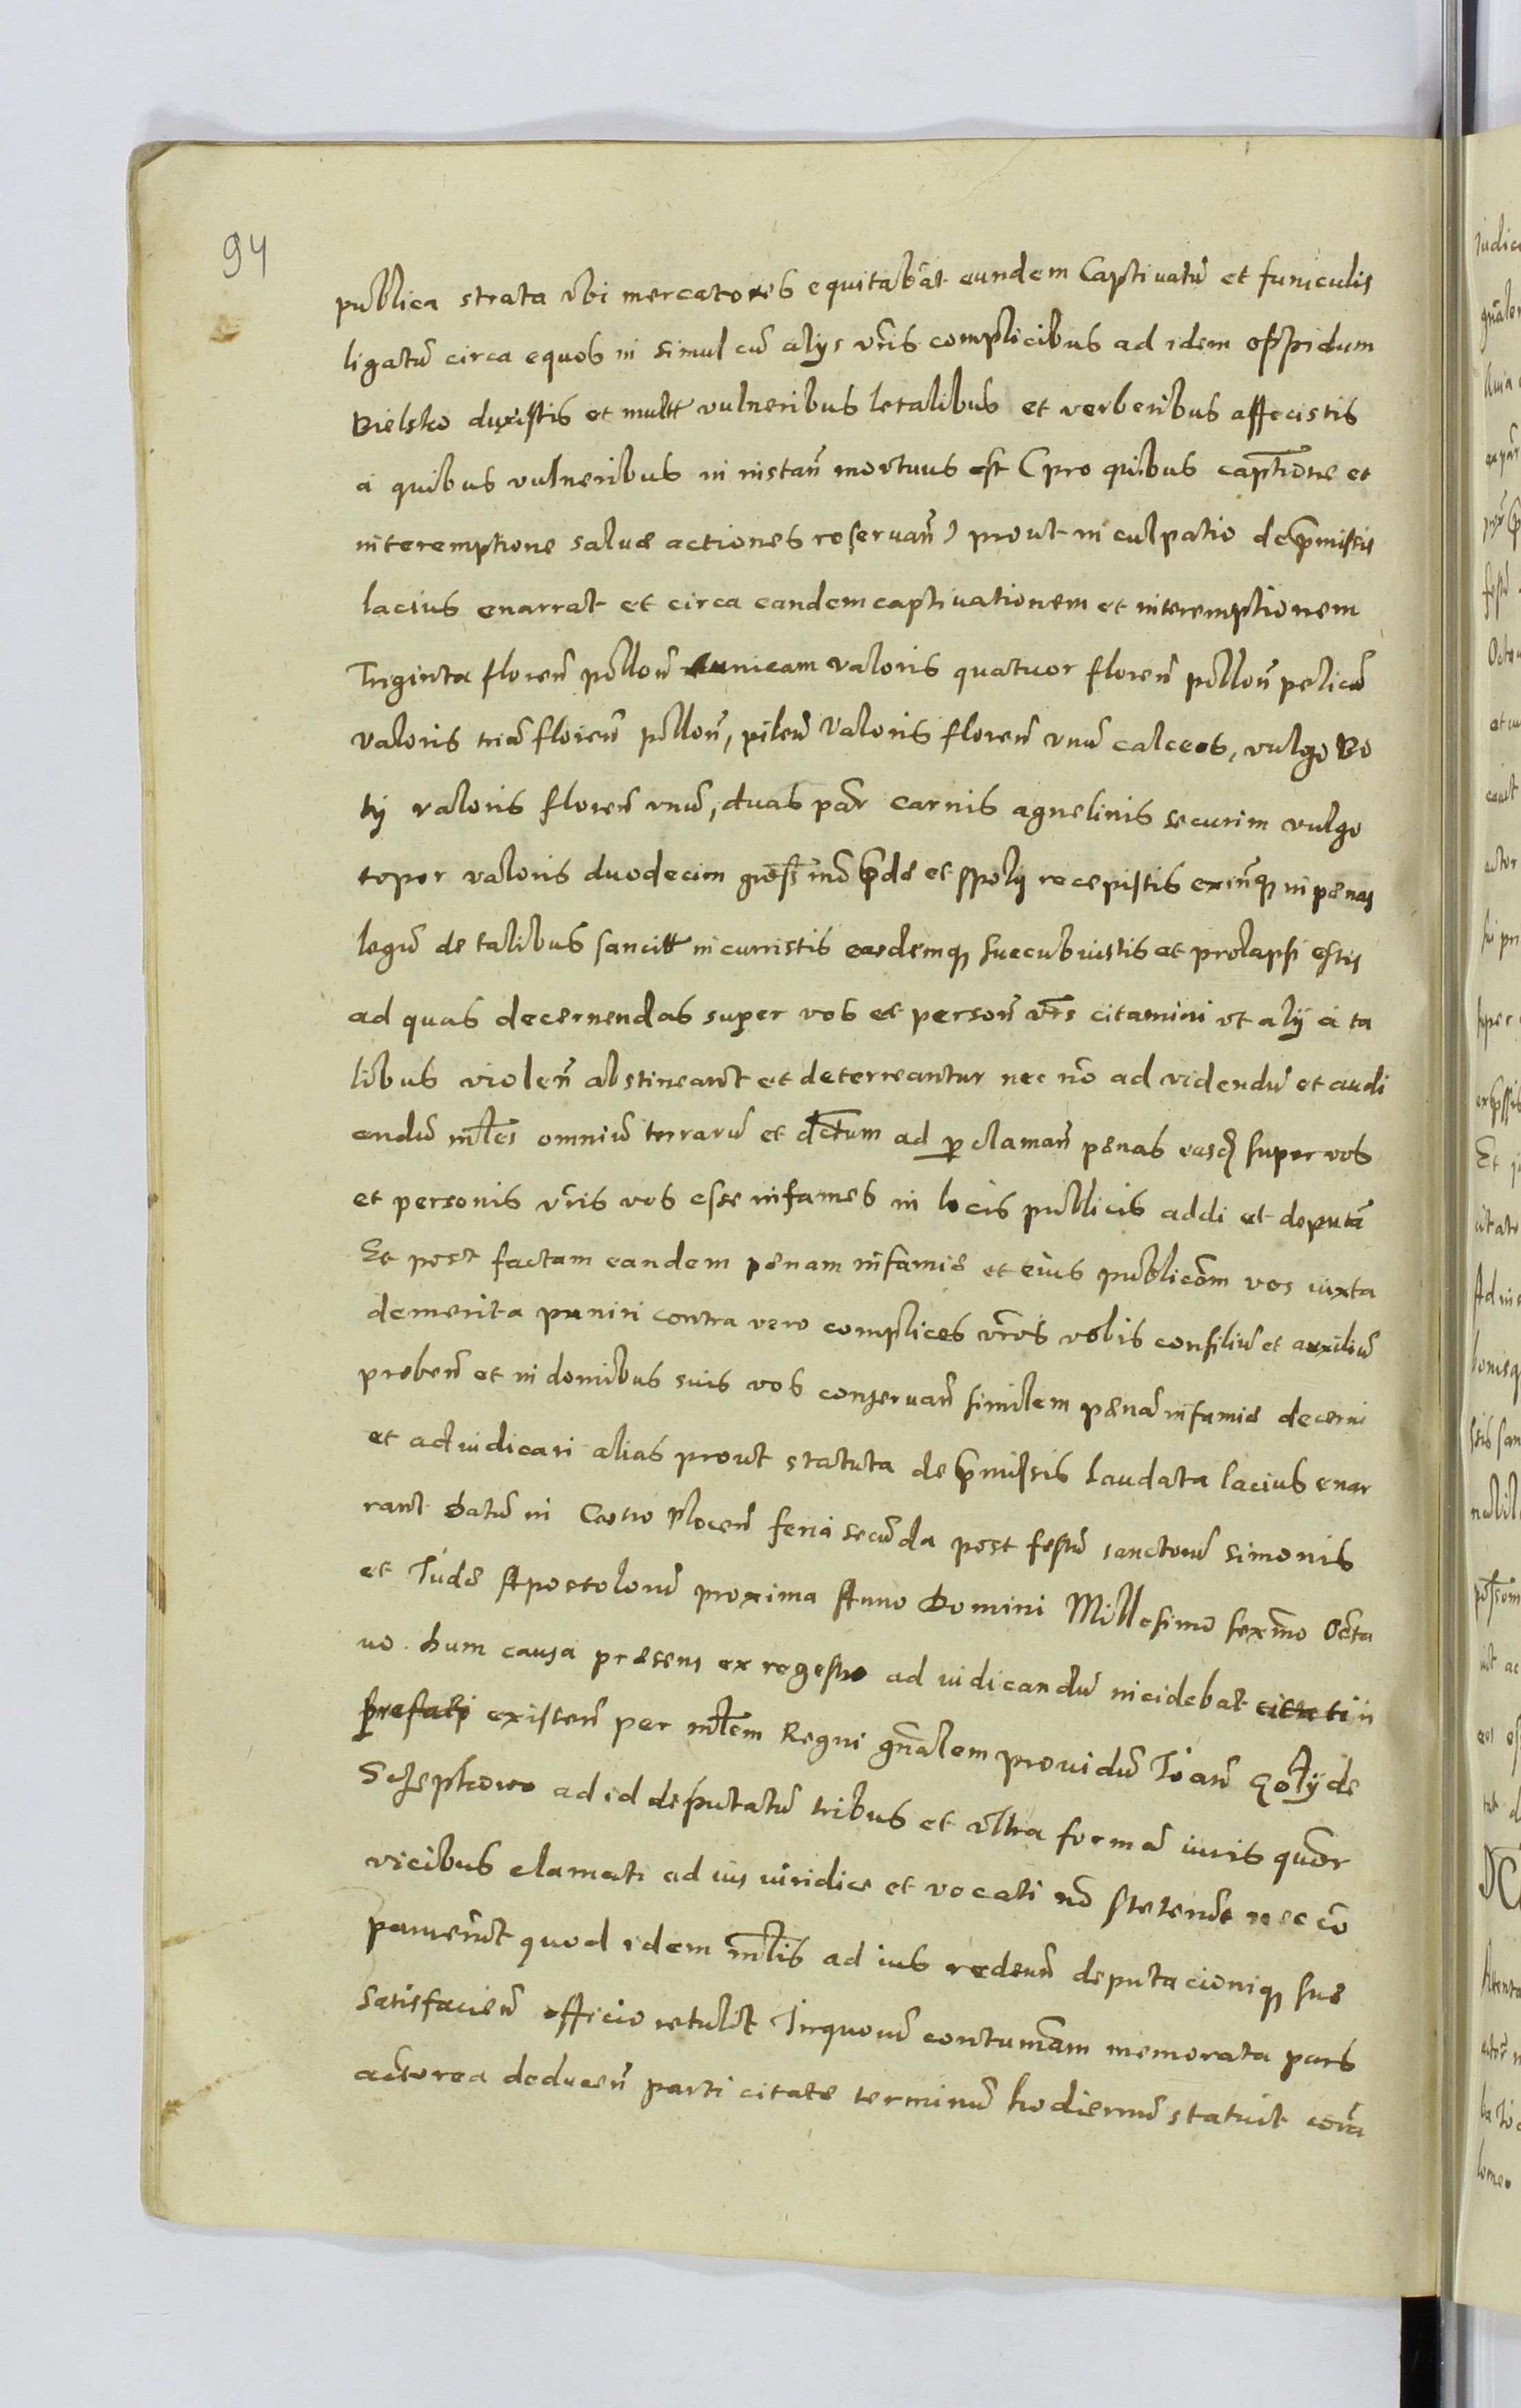 94
publica strata vbi mercatores equitabāt eundem Captiuatū et funiculis
ligatū circa equos in simul cū alys vr̄is complicibus ad idem oppidum
Bielsko duxistis et multt vulneribus letalibus et verberibus affecistis
a quibus vulneribus in instan̄ mortuus est (pro quibus captione et
interemptione saluæ actiones reseruan̄) prout inculpatio de p̄missis
lacius enarrat et circa eandem captiuationem et interemptionem
Triginta floren̄ pollon̄ tunicam valoris quatuor floren̄ pollon̄ pelicū
valoris triū floren̄ pollon̄, pileū valoris floren̄ vnū calceos, vulgo Bo
ty valoris floren̄ vnū, duas par̄ carnis agnelinis securim vulgo
topor valoris duodecim gross̄ mō p̄dæ et spoly recepistis exīnq̄ in pænas
legū de talibus sancitt incurristis easdemq̄ succubuistis et prolapsi estis
ad quas decernendas super vos et person̄ vr̄s citamini vt aly a ta
libus violen̄ abstineant et deterreantur nec nō ad videndū et audi
endū mtt̄es omniū terrarū et dc̄tum ad p̱clamān pænas easd̄ super vos
et personis vr̄is vos esse infames in locis publicis addi et deputā
Et post factam eandem pænam infamiæ et eius publicōm vos iuxta
demerita puniri contra vero complices vr̄os vobis consiliū et auxiliū
præben̄ et in domibus suis vos conseruan̄ similem pænā infamiæ decerni
et adiudicari alias prout statuta de p̄missis laudata lacius enar
rant Datū in Castro Plocen̄ feria secūda post festū sanctorū Simonis
et Iudæ Apostolorū proxima Anno Domini Millesimo sexmo Octa
uo. Dum causa præsens ex regestro ad iudicandū incidebat citati
præfati existen̄ per mtt̄em Regni gn̄alem prouidū Ioan̄ Goły de
Sczepkowo ad id deputatū tribus et vltra formā iuris quōr
vicibus clamati ad ius iuridice et vocati nō steterūt nec cō
paruerūt quod idem mtt̄is ad ius redeun̄ deputacioniq̄ suæ
satisfacien̄ officio retulit In quorū contumām memorata pars
actorea deducen̄ parti citatæ terminū hodiernū statuit corā